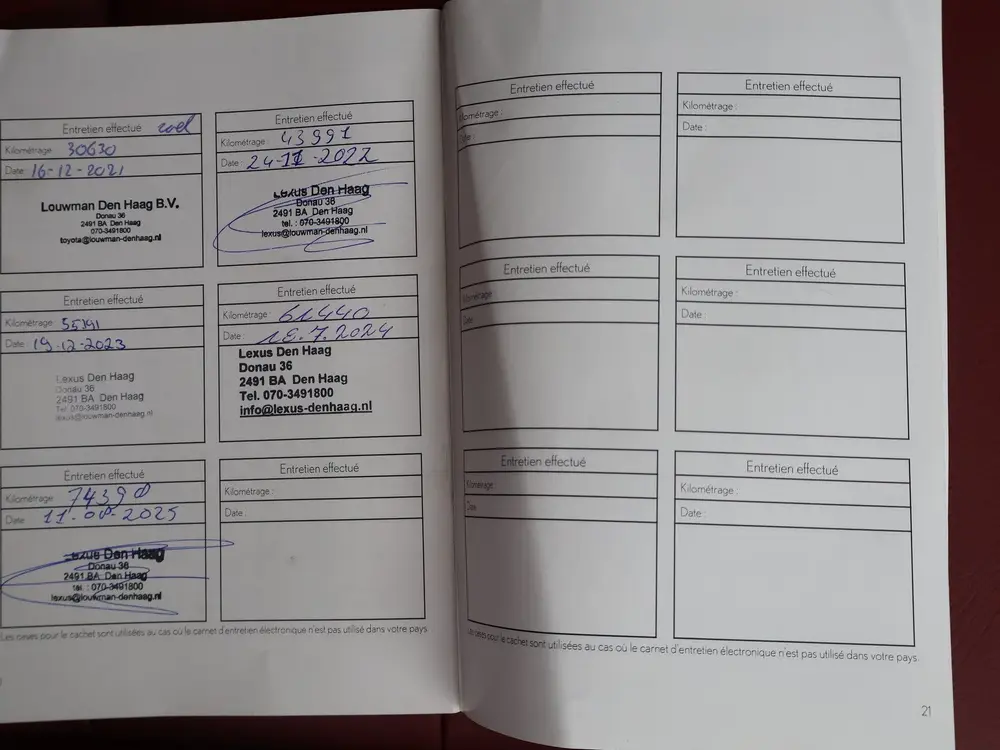 Entretien effectué
Kilométrage : 30630
Date : 16-12-2021
Louwman Den Haag B.V.
Donau 36
2491 BA Den Haag
070-3491800
toyota@louwman-denhaag.nl
Entretien effectué
Kilométrage : 43991
Date : 24-11-2022
Lexus Den Haag
Donau 36
2491 BA Den Haag
tel. : 070-3491800
lexus@louwman-denhaag.nl
Entretien effectué
Kilométrage :
Date : 19-12-2023
Lexus Den Haag
Donau 36
2491 BA Den Haag
Tel. 070-3491800
lexus@louwman-denhaag.nl
Entretien effectué
Kilométrage : 61440
Date : 18.7.2024
Lexus Den Haag
Donau 36
2491 BA Den Haag
Tel. 070-3491800
info@lexus-denhaag.nl
Entretien effectué
Kilométrage : 74390
Date : 11-08-2025
Lexus Den Haag
Donau 36
2491 BA Den Haag
tel. : 070-3491800
lexus@louwman-denhaag.nl
Entretien effectué
Kilométrage :
Date :
Les cases pour le cachet sont utilisées au cas où le carnet d'entretien électronique n'est pas utilisé dans votre pays.
Entretien effectué
Kilométrage :
Date :
Entretien effectué
Kilométrage :
Date :
Entretien effectué
Kilométrage :
Date :
Entretien effectué
Kilométrage :
Date :
Entretien effectué
Kilométrage :
Date :
Entretien effectué
Kilométrage :
Date :
Les cases pour le cachet sont utilisées au cas où le carnet d'entretien électronique n'est pas utilisé dans votre pays.
21